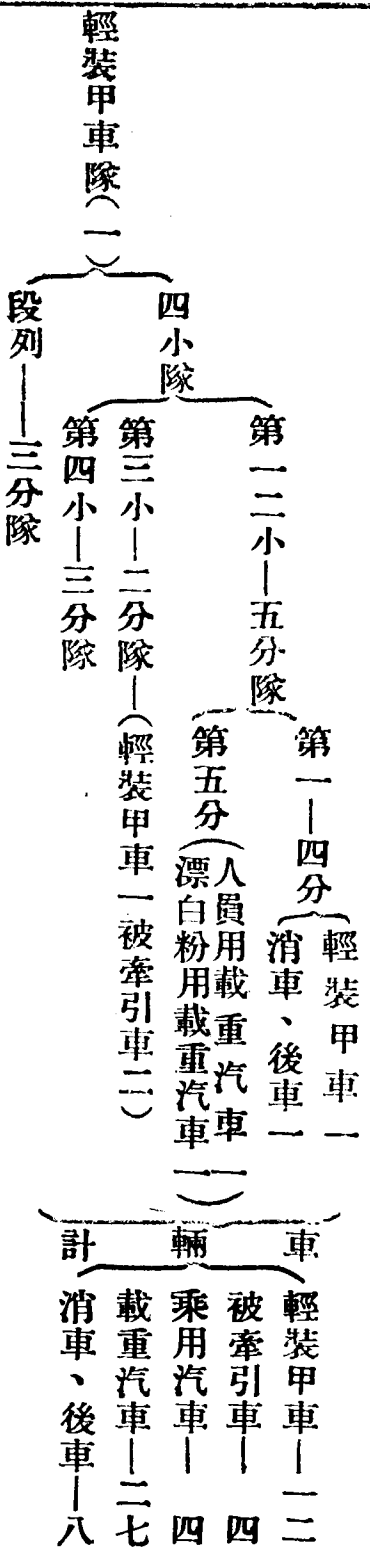 輕裝甲車隊(一)
四小隊
第一二小—五分隊
第一—四分
輕裝甲車一
消車、後車一
第五分(人員用載重汽車一
漂白粉用載重汽車一)
第三小—二分隊—(輕裝甲車一被牽引車二)
第四小—三分隊
段列—三分隊
車輛計
輕裝甲車—一二
被牽引車—四
乘用汽車—四
載重汽車—二七
消車、後車—八